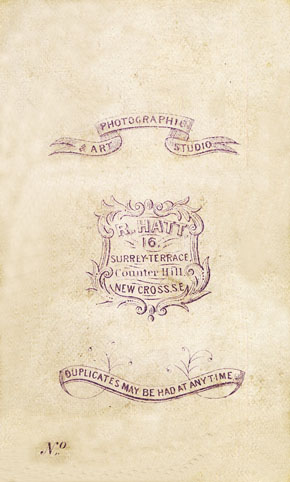 PHOTOGRAPHIC
& ART STUDIO
R. HATT
16.
SURREY-TERRACE
Counter Hill
NEW CROSS.S.E.
DUPLICATES MAY BE HAD AT ANY TIME
No.